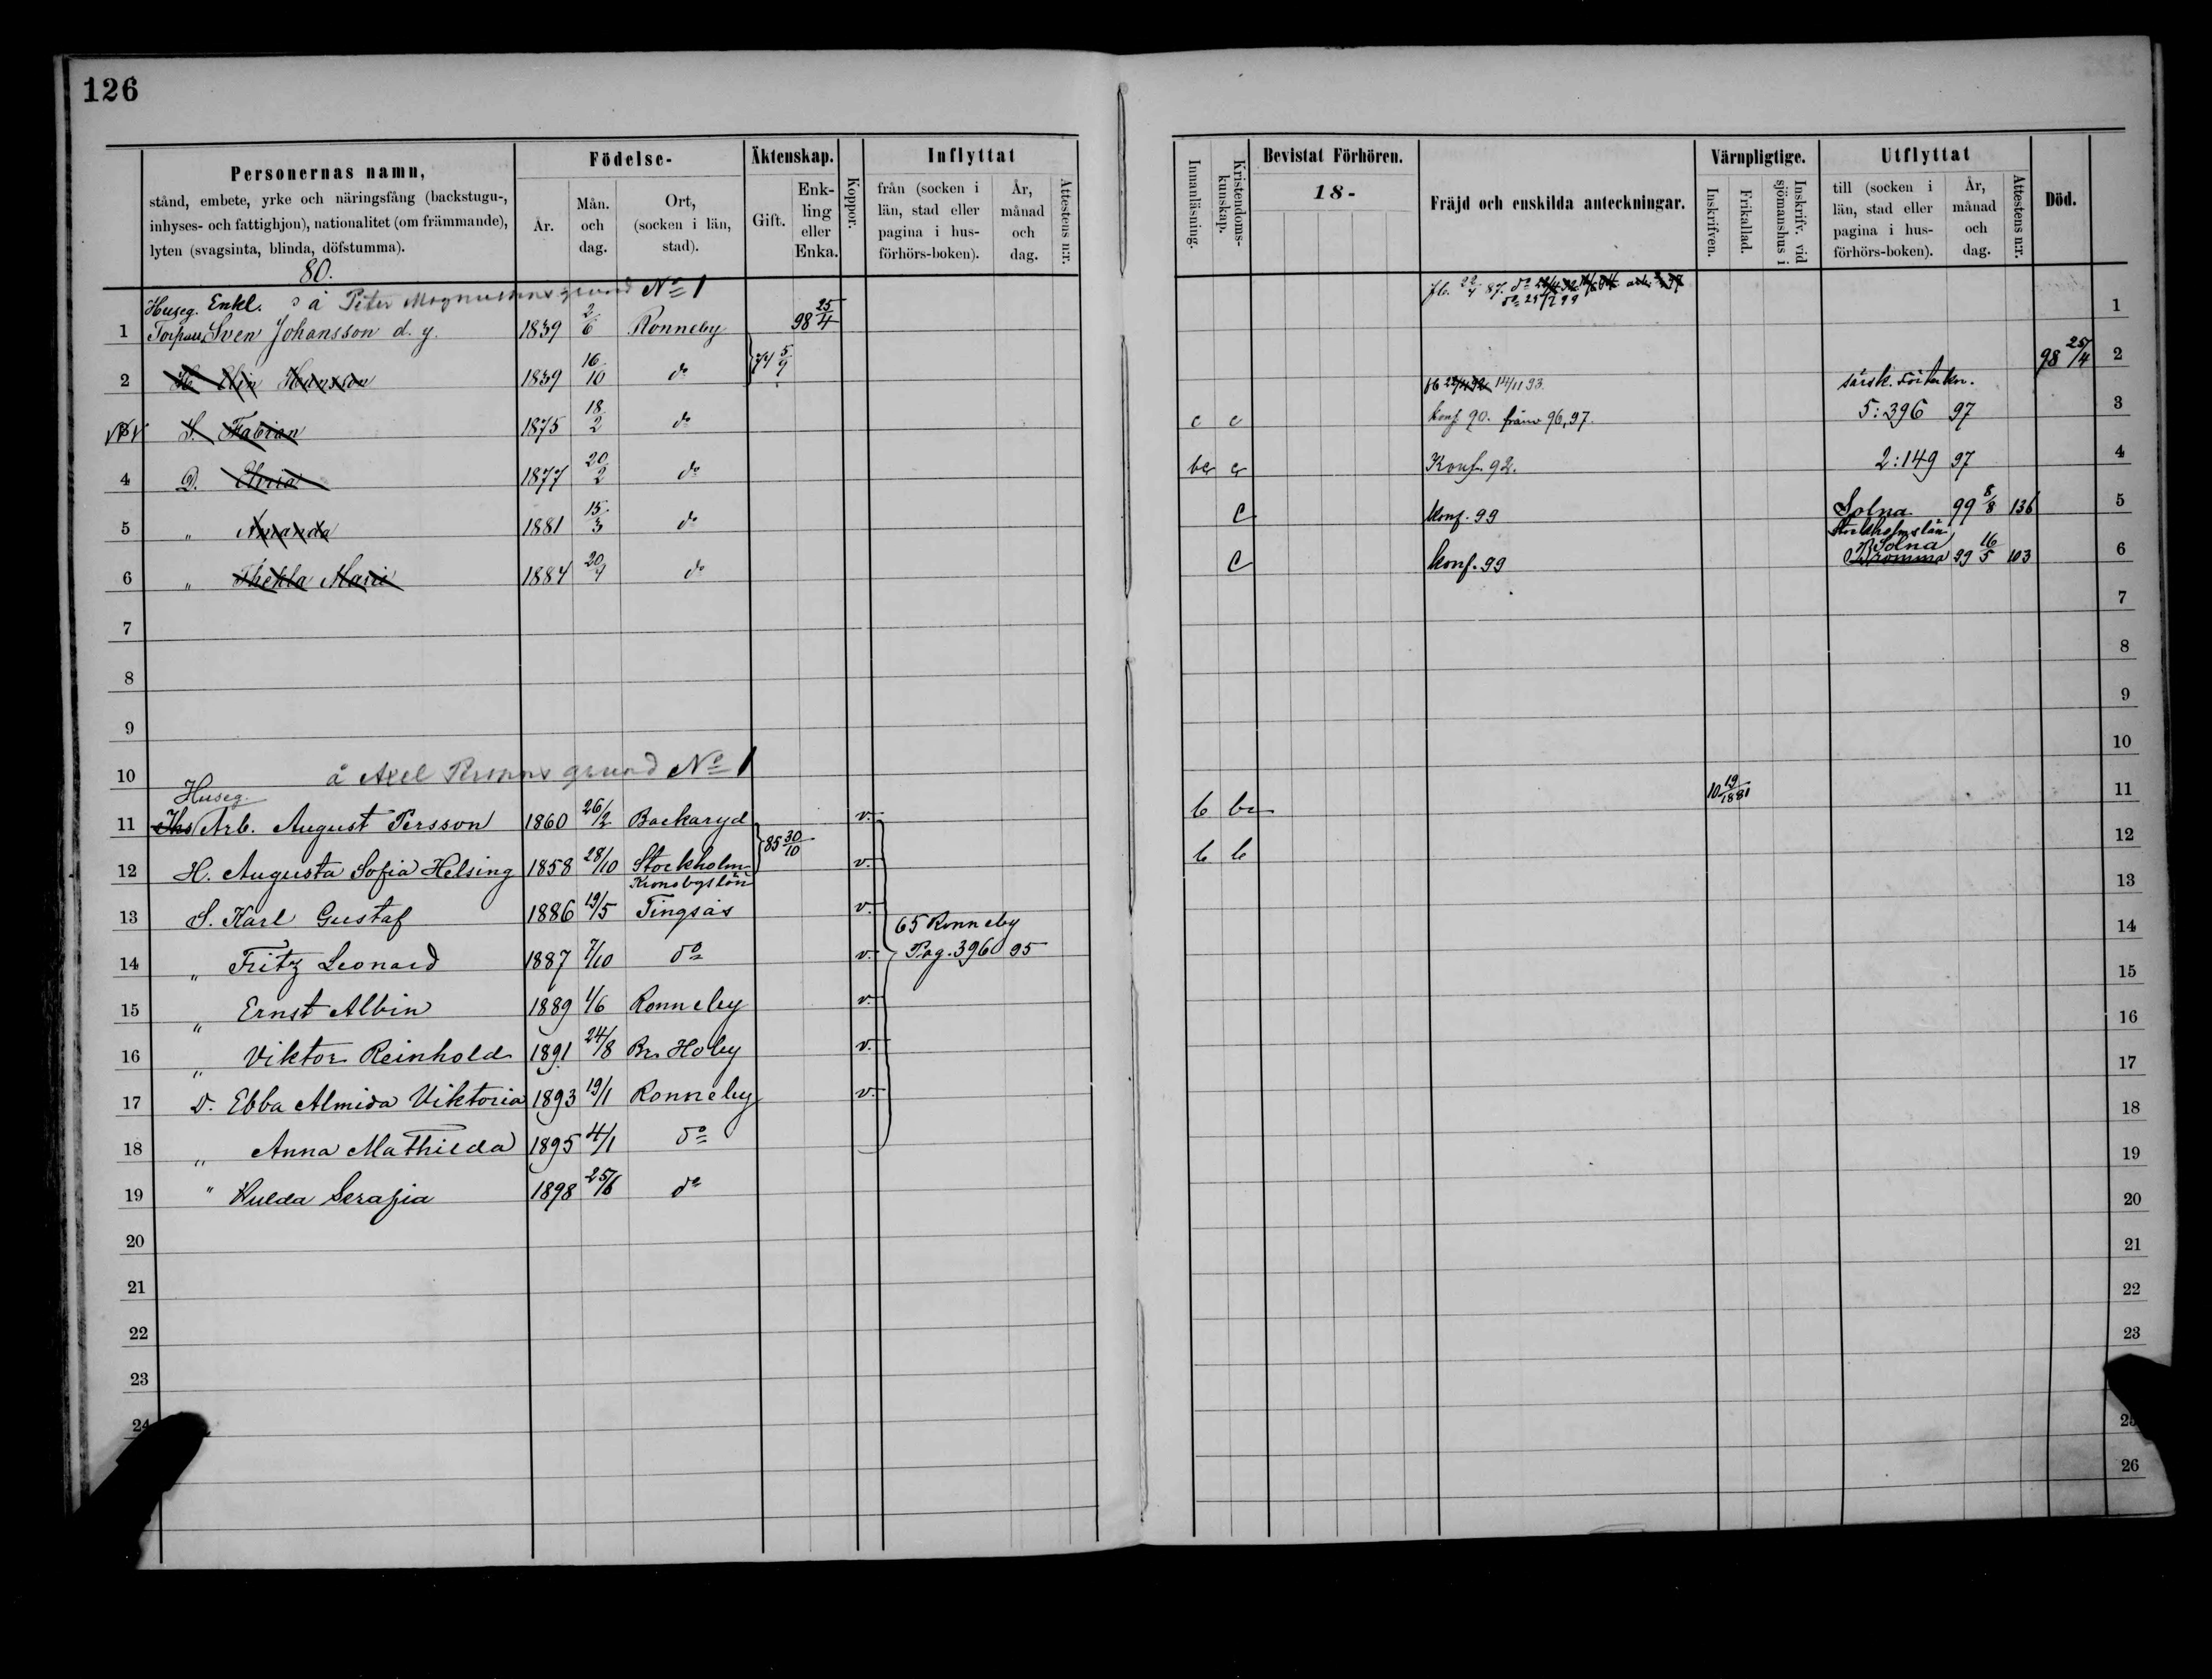 126
Personernas namn,
stånd, embete, yrke och näringsfång (backstugu-,
inhyses- och fattighjon), nationalitet (om främmande),
lyten (svagsinta, blinda, döfstumma).
Födelse-
År.
Mån. och dag.
Ort, (socken i län, stad).
Äktenskap.
Gift.
Enk- ling eller Enka.
Koppor.
Inflyttat
från (socken i län, stad eller pagina i hus- förhörs-boken).
År, månad och dag.
Attestens n:r.
Innanläsning.
Kristendoms- kunskap.
Bevistat Förhören.
18-
Fräjd och enskilda anteckningar.
Värnpligtige.
Inskrifven.
Frikallad.
Inskrifv. vid sjömanshus i
Utflyttat
till (socken i län, stad eller pagina i hus- förhörs-boken).
År, månad och dag.
Attestens n:r.
Död.
80.
Huseg. Enkl. å Peter Magnussons grund No 1
1 Torpar. Sven Johansson d. y. 1839 2/6 Ronneby 98 25/4 1
2 H. Elin Hansson 1839 16/10 do 74 5/9 98 25/4 2
14/11 93.
3 S. Fabian 1875 18/2 do c c konf 90. 96, 97. 5:396 97 3
4 D. Elvira 1877 20/2 do Konf. 92. 2:149 97 4
5 " Amanda 1881 15/3 do C konf. 99 Solna 99 8/8 136 5
Stockholms län
Solna
6 " Thekla Marie 1884 20/4 do C konf. 99 Bromma 99 16/5 103 6
7 7
8 8
9 9
10 å Axel Perssons grund No 1 10
Huseg.
11 Ihs Arb. August Persson 1860 26/2 Backaryd v. b 10 19/1881 11
12 H. Augusta Sofia Helsing 1858 28/10 Stockholm 85 30/10 v. b b 12
Kronobgs län
13 S. Karl Gustaf 1886 19/5 Tingsås v. 65 Ronneby 13
14 " Fritz Leonard 1887 7/10 do v. Pag. 396 95 14
15 " Ernst Albin 1889 1/6 Ronneby v. 15
16 " Viktor Reinhold 1891 24/8 Br. Hoby v. 16
17 D. Ebba Almida Viktoria 1893 19/1 Ronneby v. 17
18 " Anna Mathilda 1895 4/1 do 18
19 " Hulda Serafia 1898 25/6 do 19
20 20
21 21
22 22
23 23
24
25
26